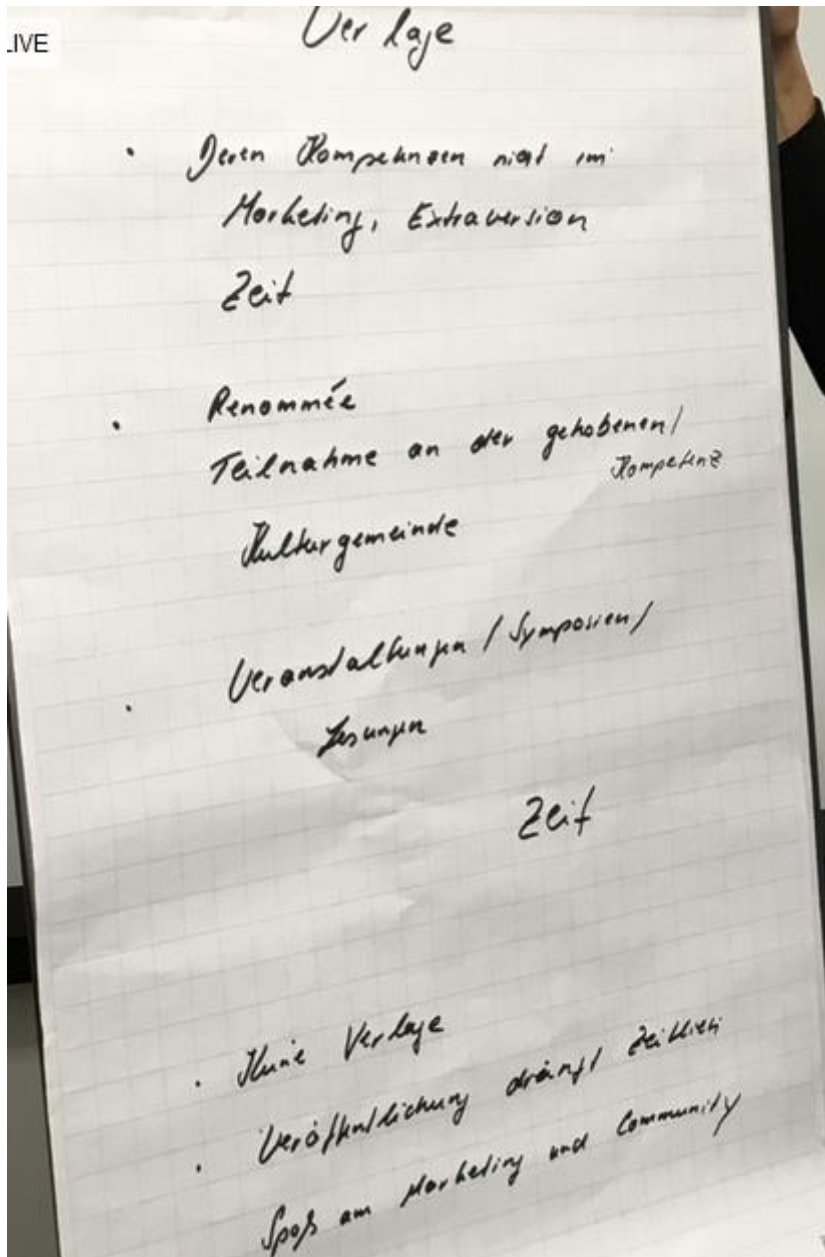 LIVE
Verlage
· Deren Kompetenzen nicht im
Marketing, Extraversion
Zeit
· Renommée
Teilnahme an der gehobenen/
Kompetenz
Kulturgemeinde
· Veranstaltungen / Symposien/
Lesungen
Zeit
· Keine Verlage
· Veröffentlichung drängt zeitlich
Spaß am Marketing und Community